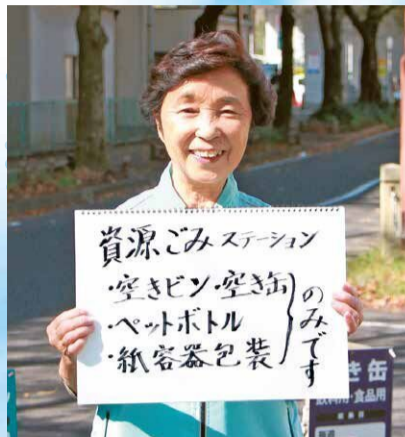 資源ごみステーション
・空きビン・空き缶
・ペットボトル
・紙容器包装
のみです
き缶
飲料用・食品用